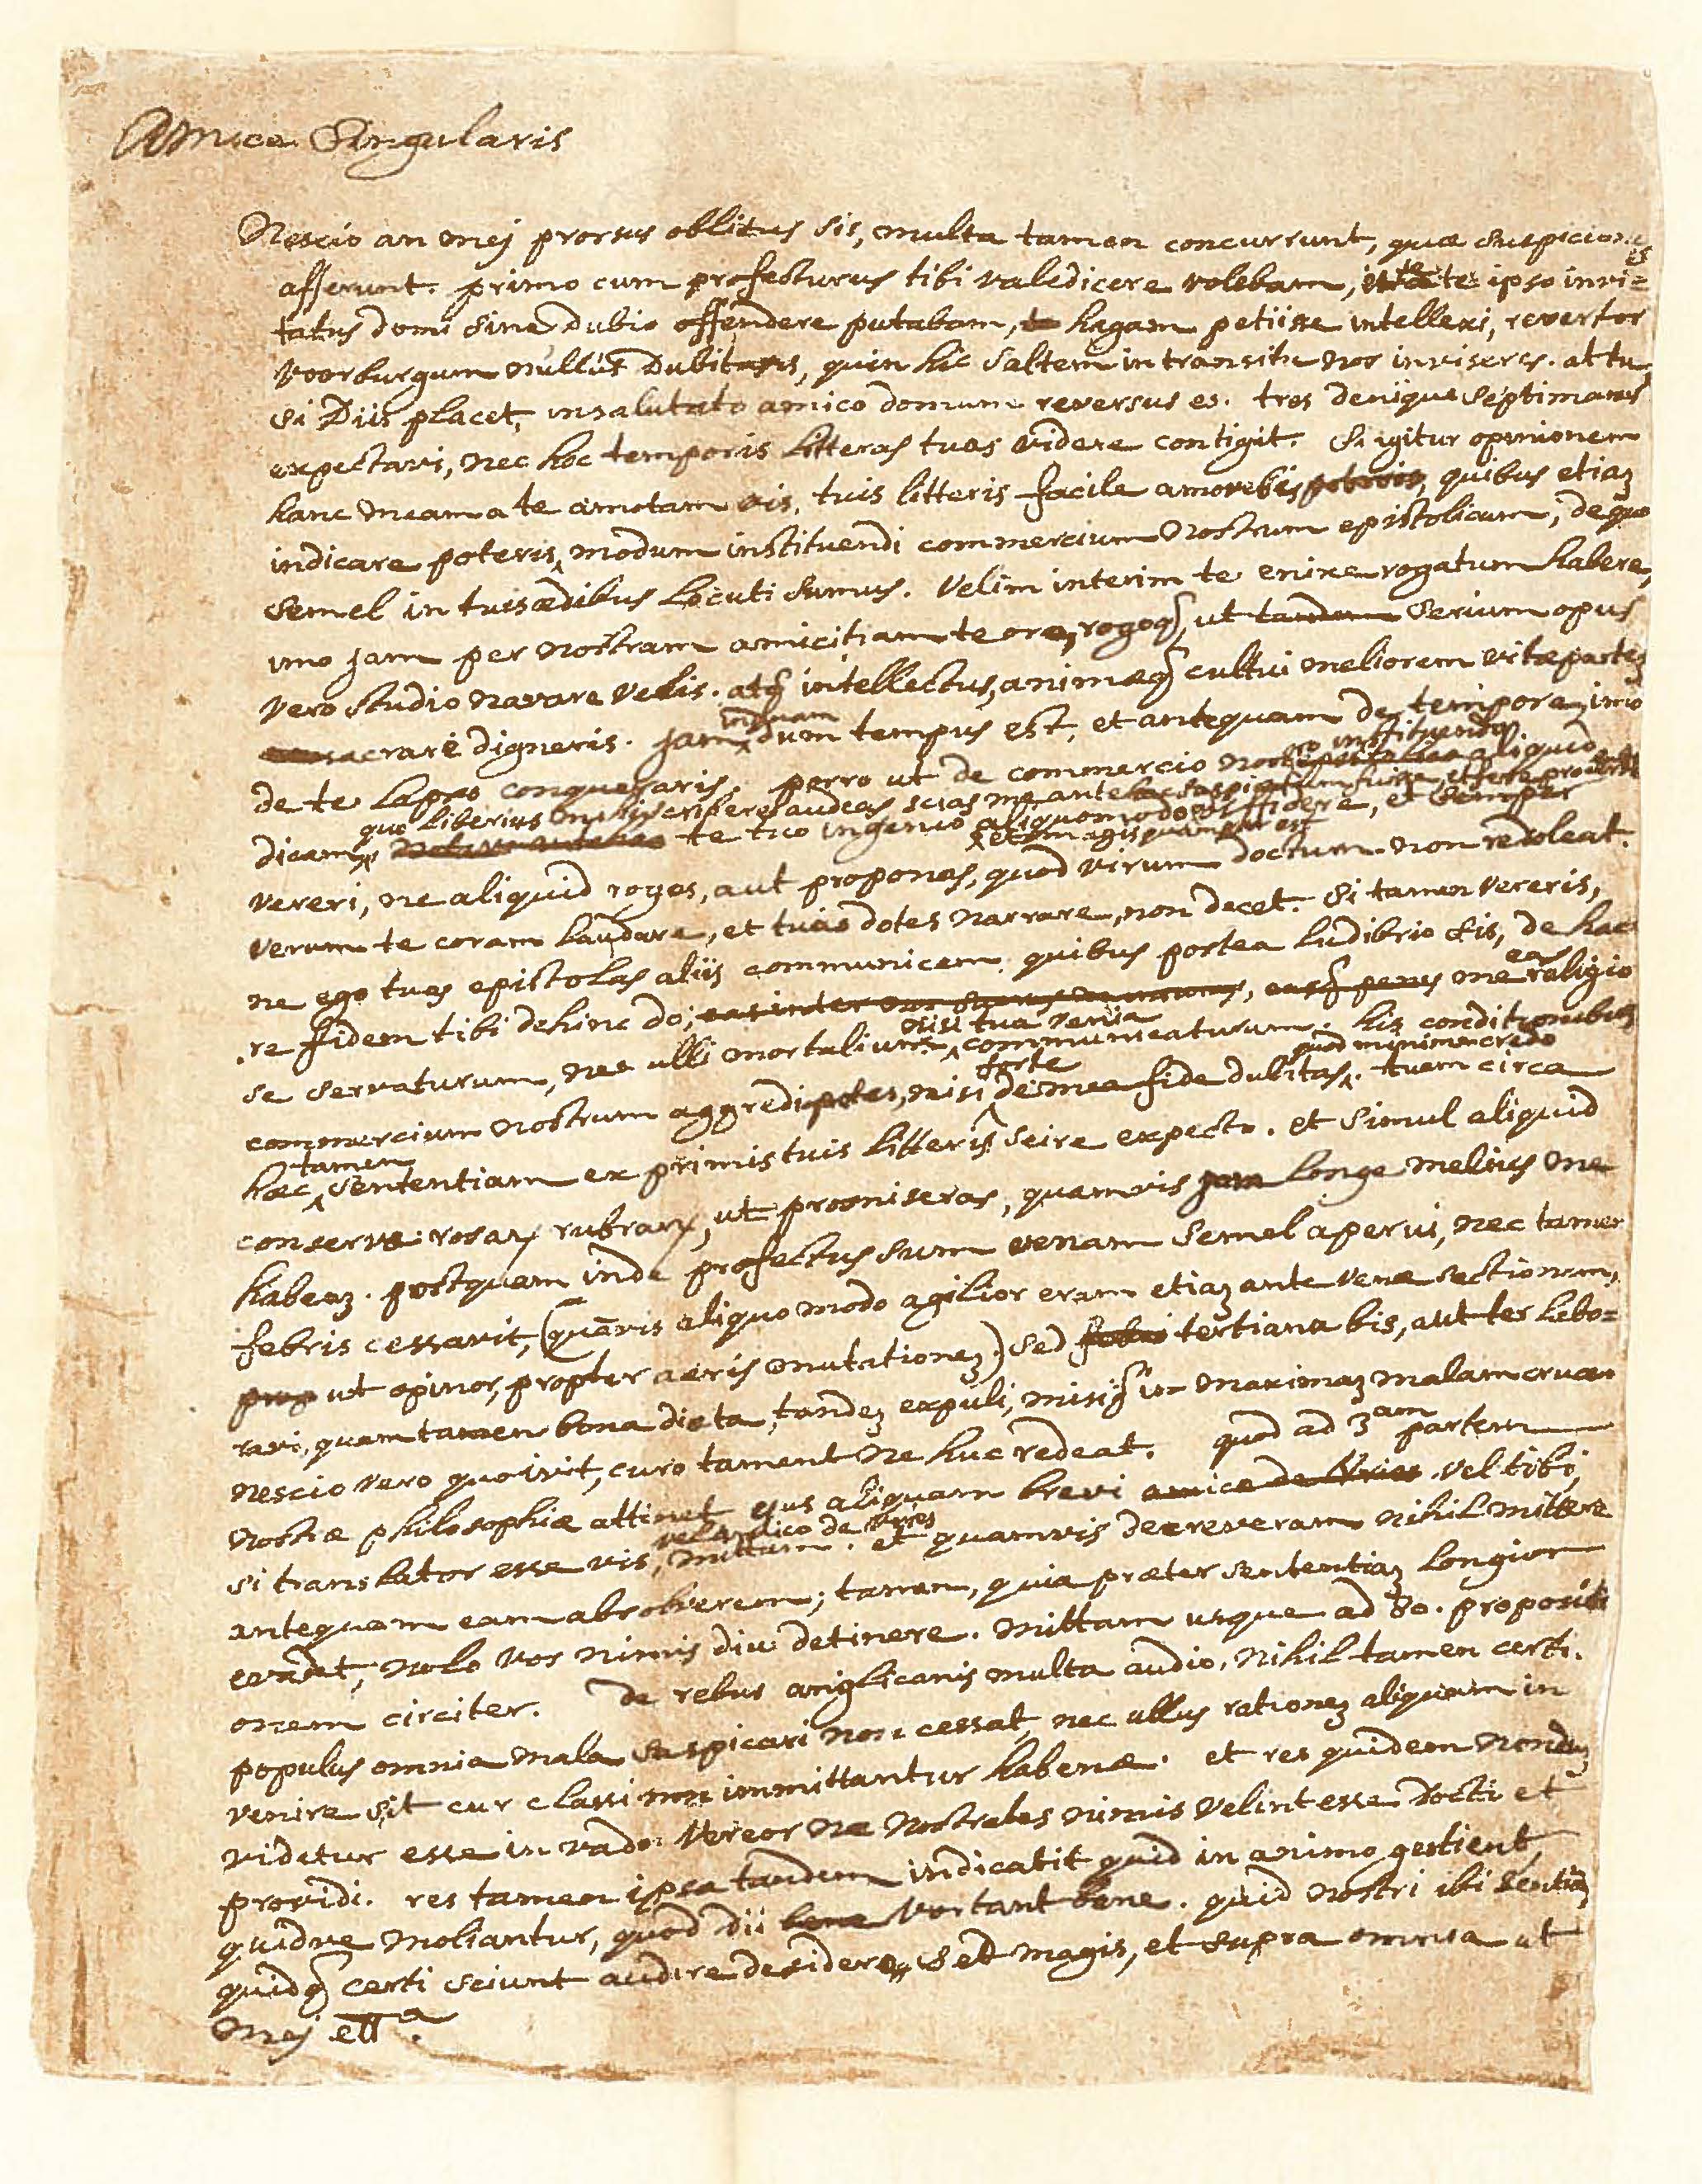 Amice Singularis
Nescio an mej prorsus oblitus sis, multa tamen concurrunt, quæ suspicionem
afferunt. primo cum profecturus tibi valedicere volebam, te ipso invi=
tatus domi sine dubio offendere putabam, hagam petiisse intellexi, revertor
voorburgum nullus dubitans, quin hic saltem in transitu nos inviseres. at tu,
si Diis placet, insalutato amico domum reversus es. tres denique septimanas
expectavi, nec hoc temporis litteras tuas videre contigit. Si igitur opinionem
hanc meam a te amotam vis, tuis litteris facile amovebis, quibus etiaz
indicare poteris modum instituendi commercium nostrum epistolicum, de quo
semel in tuis ædibus locuti sumus. Velim interim te enixe rogatum habere,
imo jam per nostram amicitiam te oro, rogoq, ut tandem serium opus
vero studio navare velis. atq intellectus, animæq cultui meliorem vitæ partez
sacrare digneris. jam inquam dum tempus est, et antequam de tempore, imo
de te lapso conqueraris. porro ut de commercio nostro instituendo aliquid
dicam, quo liberius mihi scribere audeas scias me antehac suspicatum fuisse, et fere pro certo
te tuo ingenio aliquomodo diffidere, et semper
et magis quam par est
vereri, ne aliquid roges, aut proponas, quod virum doctum non redoleat.
verum te coram laudare, et tuas dotes narrare, non decet. Si tamen vereris,
ne ego tuas epistolas aliis communicem quibus postea ludibrio sis, de hac
re fidem tibi dehinc do; eas inter, easq penes me eas religio
se servaturum, nec ulli mortalium nisi tua venia communicaturum. his conditionibus
commercium nostrum aggredi potes, nisi forte de mea fide dubitas quod minime credo. tuam circa
hæc tamen sententiam ex primis tuis litteris scire expecto. et simul aliquid
conservæ rosarum rubrarum, ut promiseras, quamvis jam longe melius me
habeaz. postquam inde profectus sum venam semel aperui, nec tamen
febris cessavit, (quāvis aliquo modo agilior eram etiaz ante venæ sectionem,
prop ut opinor, propter aëris mutationez) sed febri tertiana bis, aut ter labo=
ravi, quam tamen bona diæta, tandez expuli, misiq in maximaz malam crucem
nescio vero quo ivit, curo tament ne huc redeat. quod ad 3am partem
nostræ philosophiæ attinet ejus aliquam brevi amice de Vries vel tibi,
si translator esse vis, vel amico de Vries mittam. et quamvis decreveram nihil mittere
antequam eam absolverem; tamen, quia præter sententiaz longior
evadit, nolo vos nimis diu detinere. mittam usque ad 80. propositi
onem circiter. de rebus anglicanis multa audio, nihil tamen certi.
populus omnia mala suspicari non cessat, nec ullus rationez aliquam in
venire sit cur classi non immittantur habenæ. et res quidem nonduz
videtur esse in vado. Vereor ne nostrates nimis velint esse docti et
providi. res tamen ipsa tandem indicabit quid in animo gestient,
quidve moliantur, quod dii bene vortant bene. quid nostri ibi sentiāt,
quidq certi sciunt audire desidero, sed magis, et supra omnia ut
mej etta.